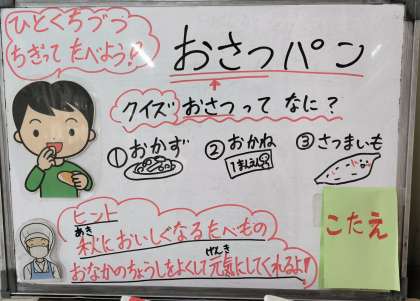 ひとくちづつ
ちぎって たべよう!!
おさつパン
クイズ おさつって なに?
①おかず
②おかね
1まんえん
③さつまいも
ヒント
秋においしくなるたべもの
あき
おなかのちょうしをよくして元気にしてくれるよ!
げんき
こたえ